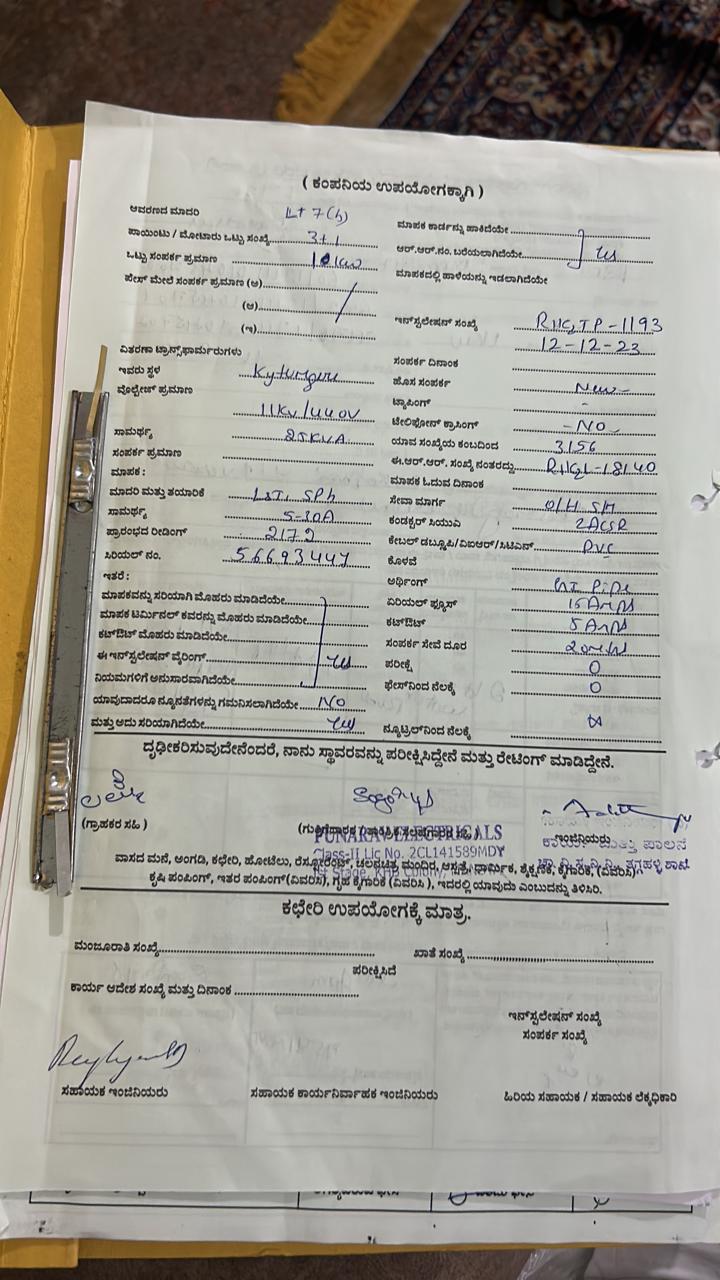 ( ಕಂಪನಿಯ ಉಪಯೋಗಕ್ಕಾಗಿ )
ಆವರಣದ ಮಾದರಿ LT 7(b)
ಪಾಯಿಂಟು / ಮೋಟಾರು ಒಟ್ಟು ಸಂಖ್ಯೆ 3+1
ಒಟ್ಟು ಸಂಪರ್ಕ ಪ್ರಮಾಣ
ಪೇಸ್ ಮೇಲೆ ಸಂಪರ್ಕ ಪ್ರಮಾಣ (ಅ)
(ಆ)
(ಇ)
ವಿತರಣಾ ಟ್ರಾನ್ಸ್‌ಫಾರ್ಮರುಗಳು
ಇವರು ಸ್ಥಳ
ವೋಲ್ಟೇಜ್ ಪ್ರಮಾಣ
11KV/440V
ಸಾಮರ್ಥ್ಯ 25KVA
ಸಂಪರ್ಕ ಪ್ರಮಾಣ
ಮಾಪಕ :
ಮಾದರಿ ಮತ್ತು ತಯಾರಿಕೆ L&T, SPh
ಸಾಮರ್ಥ್ಯ 5-30A
ಪ್ರಾರಂಭದ ರೀಡಿಂಗ್ 2172
ಸಿರಿಯಲ್ ನಂ.
ಇತರೆ :
ಮಾಪಕವನ್ನು ಸರಿಯಾಗಿ ಮೊಹರು ಮಾಡಿದೆಯೇ
ಮಾಪಕ ಟರ್ಮಿನಲ್ ಕವರನ್ನು ಮೊಹರು ಮಾಡಿದೆಯೇ
ಕಟ್‌ಔಟ್ ಮೊಹರು ಮಾಡಿದೆಯೇ
ಈ ಇನ್‌ಸ್ಟಲೇಷನ್ ವೈರಿಂಗ್ yes
ನಿಯಮಗಳಿಗೆ ಅನುಸಾರವಾಗಿದೆಯೇ
ಯಾವುದಾದರೂ ನ್ಯೂನತೆಗಳನ್ನು ಗಮನಿಸಲಾಗಿದೆಯೇ NO
ಮತ್ತು ಅದು ಸರಿಯಾಗಿದೆಯೇ yes
ಮಾಪಕ ಕಾರ್ಡನ್ನು ಹಾಕಿದೆಯೇ
ಆರ್.ಆರ್.ನಂ. ಬರೆಯಲಾಗಿದೆಯೇ yes
ಮಾಪಕದಲ್ಲಿ ಹಾಳೆಯನ್ನು ಇಡಲಾಗಿದೆಯೇ
ಇನ್‌ಸ್ಟಲೇಷನ್ ಸಂಖ್ಯೆ RHGTP-1193
12-12-23
ಸಂಪರ್ಕ ದಿನಾಂಕ
ಹೊಸ ಸಂಪರ್ಕ New -
ಟ್ಯಾಪಿಂಗ್ -
ಟೆಲಿಫೋನ್ ಕ್ರಾಸಿಂಗ್ - NO -
ಯಾವ ಸಂಖ್ಯೆಯ ಕಂಬದಿಂದ 3156
ಈ.ಆರ್.ಆರ್. ಸಂಖ್ಯೆ ನಂತರದ್ದು RHGL-18140
ಮಾಪಕ ಓದುವ ದಿನಾಂಕ
ಸೇವಾ ಮಾರ್ಗ O/H SM
ಕಂಡಕ್ಟರ್ ಸಿಯುಎ 2ACSR
ಕೇಬಲ್ ಡಬ್ಲೂಪಿ/ವಿಐಆರ್/ಸಿಟಿಎಸ್ PVC
ಕೊಳವೆ
ಅರ್ಥಿಂಗ್ GI Pipe
ಏರಿಯಲ್ ಫ್ಯೂಸ್ 15 Amps
ಕಟ್‌ಔಟ್ 5 Amps
ಸಂಪರ್ಕ ಸೇವೆ ದೂರ
ಪರೀಕ್ಷೆ 0
ಫೇಸ್‌ನಿಂದ ನೆಲಕ್ಕೆ 0
ನ್ಯೂಟ್ರಲ್‌ನಿಂದ ನೆಲಕ್ಕೆ
ದೃಢೀಕರಿಸುವುದೇನೆಂದರೆ, ನಾನು ಸ್ಥಾವರವನ್ನು ಪರೀಕ್ಷಿಸಿದ್ದೇನೆ ಮತ್ತು ರೇಟಿಂಗ್ ಮಾಡಿದ್ದೇನೆ.
(ಗ್ರಾಹಕರ ಸಹಿ)
PUNARAV ELECTRICALS
Class-II Lic No. 2CL141589MDY
1st Stage, KHB Colony
ಇಂಜಿನಿಯರು
ವಾಸದ ಮನೆ, ಅಂಗಡಿ, ಕಛೇರಿ, ಹೋಟೆಲು, ರೆಸ್ಟೋರೆಂಟ್, ಚಲನಚಿತ್ರ, ಮಂದಿರ, ಆಸ್ಪತ್ರೆ, ಧಾರ್ಮಿಕ, ಶೈಕ್ಷಣಿಕ, ಕೈಗಾರಿಕೆ, (ವಿವರಿಸಿ)
ಕೃಷಿ ಪಂಪಿಂಗ್, ಇತರ ಪಂಪಿಂಗ್(ವಿವರಿಸಿ), ಗೃಹ ಕೈಗಾರಿಕೆ (ವಿವರಿಸಿ), ಇದರಲ್ಲಿ ಯಾವುದು ಎಂಬುದನ್ನು ತಿಳಿಸಿರಿ.
ಕಛೇರಿ ಉಪಯೋಗಕ್ಕೆ ಮಾತ್ರ.
ಮಂಜೂರಾತಿ ಸಂಖ್ಯೆ ಖಾತೆ ಸಂಖ್ಯೆ
ಪರೀಕ್ಷಿಸಿದೆ
ಕಾರ್ಯ ಆದೇಶ ಸಂಖ್ಯೆ ಮತ್ತು ದಿನಾಂಕ
ಇನ್‌ಸ್ಟಲೇಷನ್ ಸಂಖ್ಯೆ
ಸಂಪರ್ಕ ಸಂಖ್ಯೆ
ಸಹಾಯಕ ಇಂಜಿನಿಯರು ಸಹಾಯಕ ಕಾರ್ಯನಿರ್ವಾಹಕ ಇಂಜಿನಿಯರು ಹಿರಿಯ ಸಹಾಯಕ / ಸಹಾಯಕ ಲೆಕ್ಕಧಿಕಾರಿ